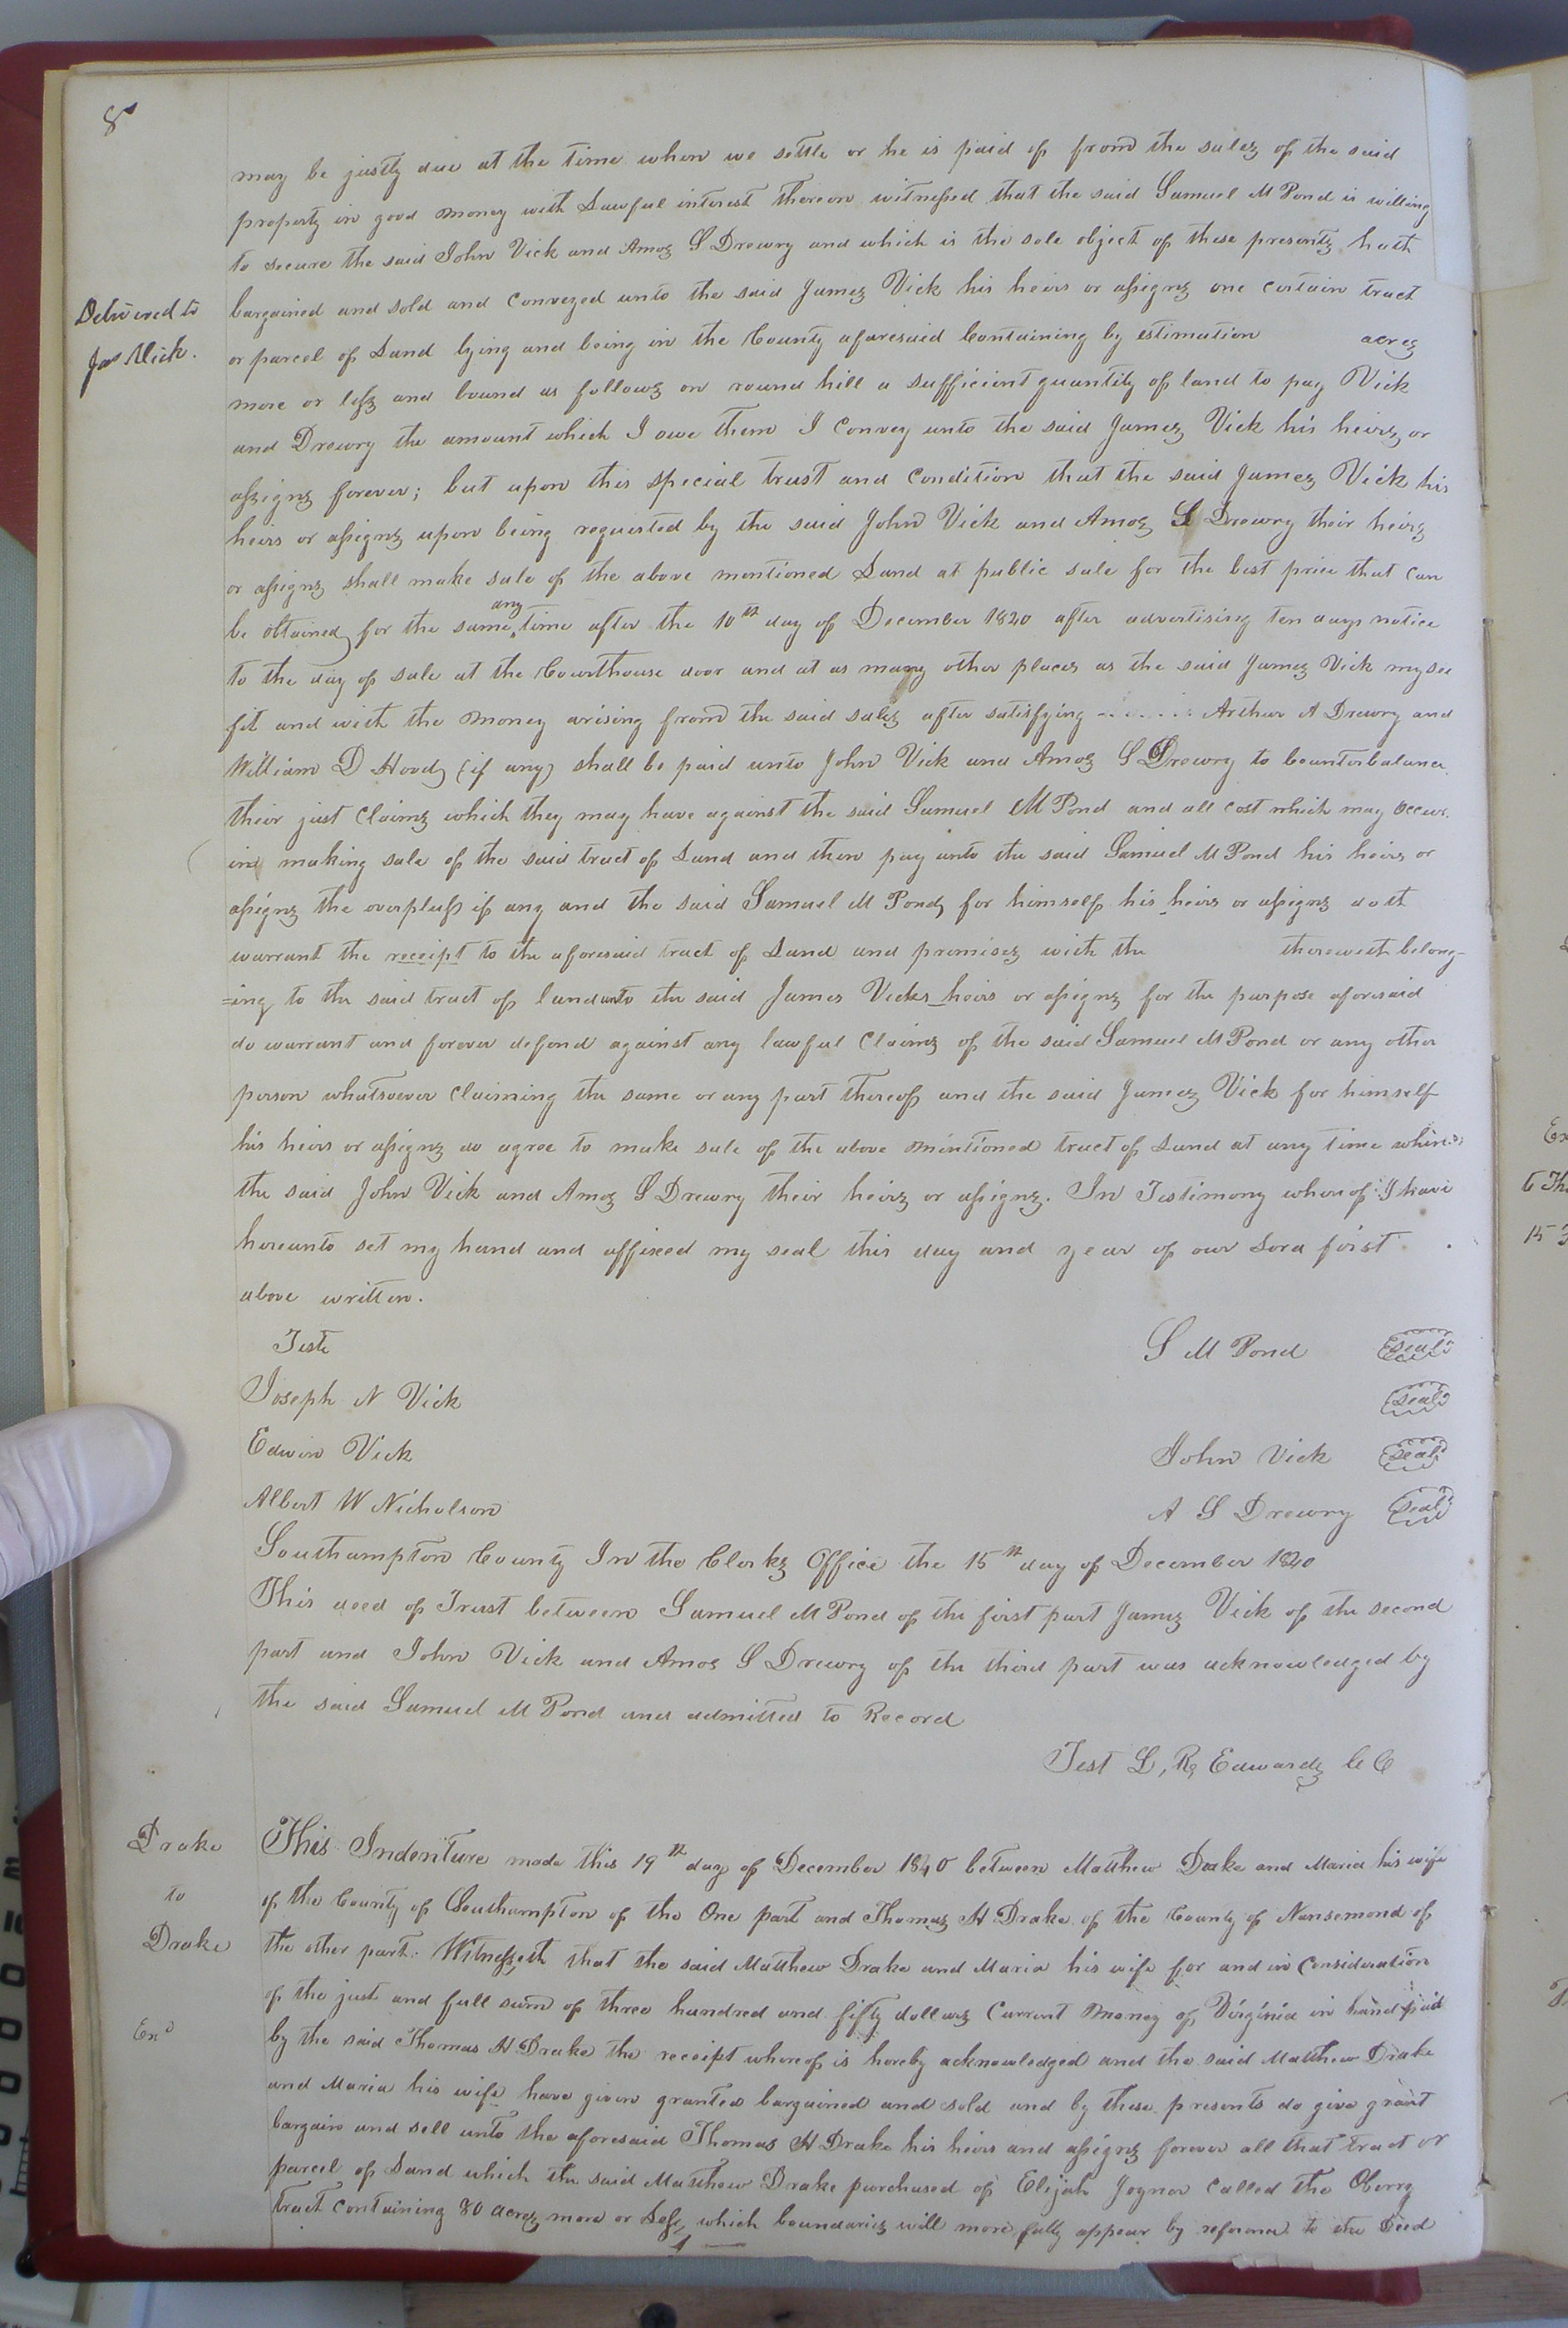 8
may be justly due at the time when we settle or he is paid of from the sales of the said
property in good money with Lawful interest thereon witnessed that the said Samuel M Pond is willing
to secure the said John Vick and Amos S Drewry and which is the sole object of these presents hath
bargained and sold and conveyed unto the said James Vick his heirs or assigns one certain tract
Delivered to
Jas Vick.
or parcel of Land lying and being in the County aforesaid Containing by estimation acres
more or less and bound as follows on round hill a sufficient quantity of land to pay Vick
and Drewry the amount which I owe them I Convey unto the said James Vick his heirs or
assigns forever; but upon this special trust and Condition that the said James Vick his
heirs or assigns upon being requested by the said John Vick and Amos S Drewry their heirs
or assigns shall make sale of the above mentioned Land at public sale for the best price that can
be obtained for the same any time after the 10th day of December 1840 after advertising ten days notice
to the day of sale at the Courthouse door and at as many other places as the said James Vick my see
fit and with the money arising from the said sales after satisfying ....... Arthur A Drewry and
William D Hood (if any) shall be paid unto John Vick and Amos S Drewry to Counterbalance
their just Claims which they may have against the said Samuel M Pond and all cost which may occur
in making sale of the said tract of Land and then pay unto the said Samuel M Pond his heirs or
assigns the overpluss if any and the said Samuel M Pond for himself his heirs or assigns doth
warrant the receipt to the aforesaid tract of Land and premises with the therewith belong-
=ing to the said tract of land unto the said James Vicks heirs or assigns for the purpose aforesaid
do warrant and forever defend against any lawful Claims of the said Samuel M Pond or any other
person whatsoever Claiming the same or any part thereof and the said James Vick for himself
his heirs or assigns do agree to make sale of the above mentioned tract of Land at any time when
the said John Vick and Amos S Drewry their heirs or assigns. In Testimony whereof I have
hereunto set my hand and affixed my seal this day and year of our Lord first
above written.
Teste S M Pond Seal
Joseph N Vick Seal
Edwin Vick John Vick Seal
Albert W Nicholson A S Drewry Seal
Southampton County In the Clerks Office the 15th day of December 1840
This deed of Trust between Samuel M Pond of the first part James Vick of the second
part and John Vick and Amos S Drewry of the third part was acknowledged by
the said Samuel M Pond and admitted to Record
Test L, R, Edwards C C
Drake
to
Drake
Exd
This Indenture made this 19th day of December 1840 between Matthew Drake and Maria his wife
of the County of Southampton of the One part and Thomas H Drake of the County of Nansemond of
the other part: Witnesseth that the said Matthew Drake and Maria his wife for and in Consideration
of the just and full sum of three hundred and fifty dollars Current money of Virginia in hand paid
by the said Thomas H Drake the receipt whereof is hereby acknowledged and the said Matthew Drake
and Maria his wife have given granted bargained and sold and by these presents do give grant
bargain and sell unto the aforesaid Thomas H Drake his heirs and assigns forever all that tract or
parcel of Land which the said Matthew Drake purchased of Elijah Joyner Called the Oberry
tract Containing 80 acres more or Less, which boundaries will more fully appear by reference to the Deed